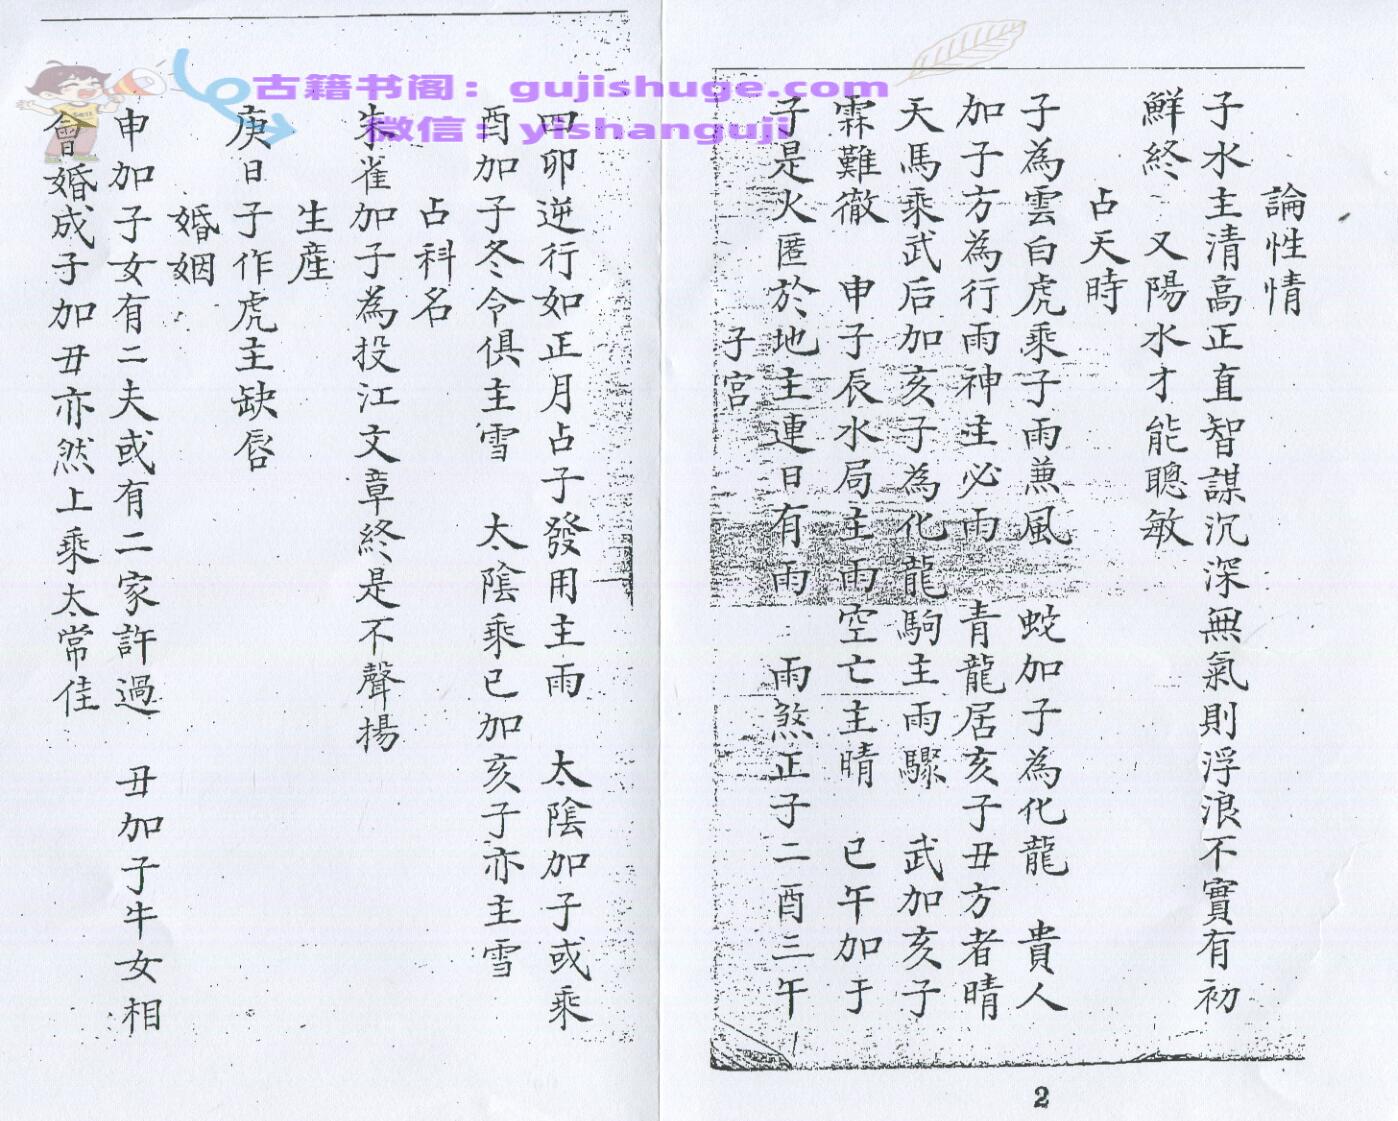 古籍书阁：gujishuge.com
微信：yishanguji
論性情
子水主清高正直智謀沉深無氣則浮浪不實有初
鮮終 又陽水才能聰敏
占天時
子為雲白虎乘子雨兼風 蛇加子為化龍 貴人
加子方為行雨神主必雨 青龍居亥子丑方者晴
天馬乘武后加亥子為化龍駒主雨驟 武加亥子
霖難徹 申子辰水局主雨空亡主晴 巳午加于
子是火匿於地主連日有雨 雨煞正子二酉三午
子宮
2
四卯逆行如正月占子發用主雨 太陰加子或乘
酉加子冬令俱主雪 太陰乘巳加亥子亦主雪
占科名
朱雀加子為投江文章終是不聲揚
生産
庚日子作虎主缺唇
婚姻
申加子女有二夫或有二家許過 丑加子牛女相
會婚成子加丑亦然上乘太常佳